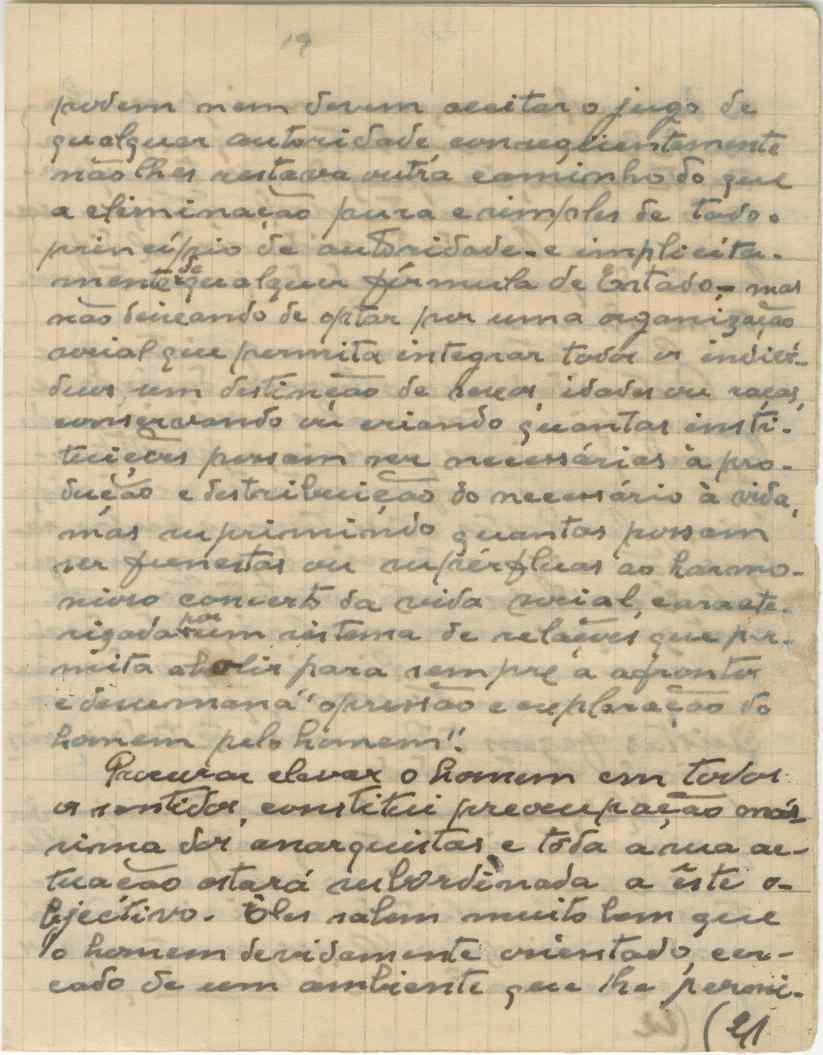 19
podem nem devem aceitar o jugo de
qualquer autoridade conseqüentemente
não lhes restava outra caminho do que
a eliminação pura e simples de todo o
princípio de autoridade - e implicita-
mente de qualquer fórmula de Estado - mas
não deixando de optar por uma organização
social que permita integrar todos os indiví-
duos, sem destinção de sexos, idades ou raças,
conservando ou criando quantas insti-
tuições possam ser necessárias à pro-
dução e destribuição do necessário à vida,
mas suprimindo quantas possam
ser funestas ou supérfluas ao harmo-
nioso concerto da vida social, caracte-
rizada por um sistema de relações que per-
mita abolir para sempre a afrontos
e desumana "opressão e exploração do
homem pelo homem".
Procurar elevar o homem em todos
os sentidos, constitui preocupação má-
xima dos anarquistas e tôda a sua ac-
tuação estará subordinada a êste o-
bjectivo. Êles sabem muito bem que
o homem devidamente orientado, cer-
cado de um ambiente que lhe permi-
(21